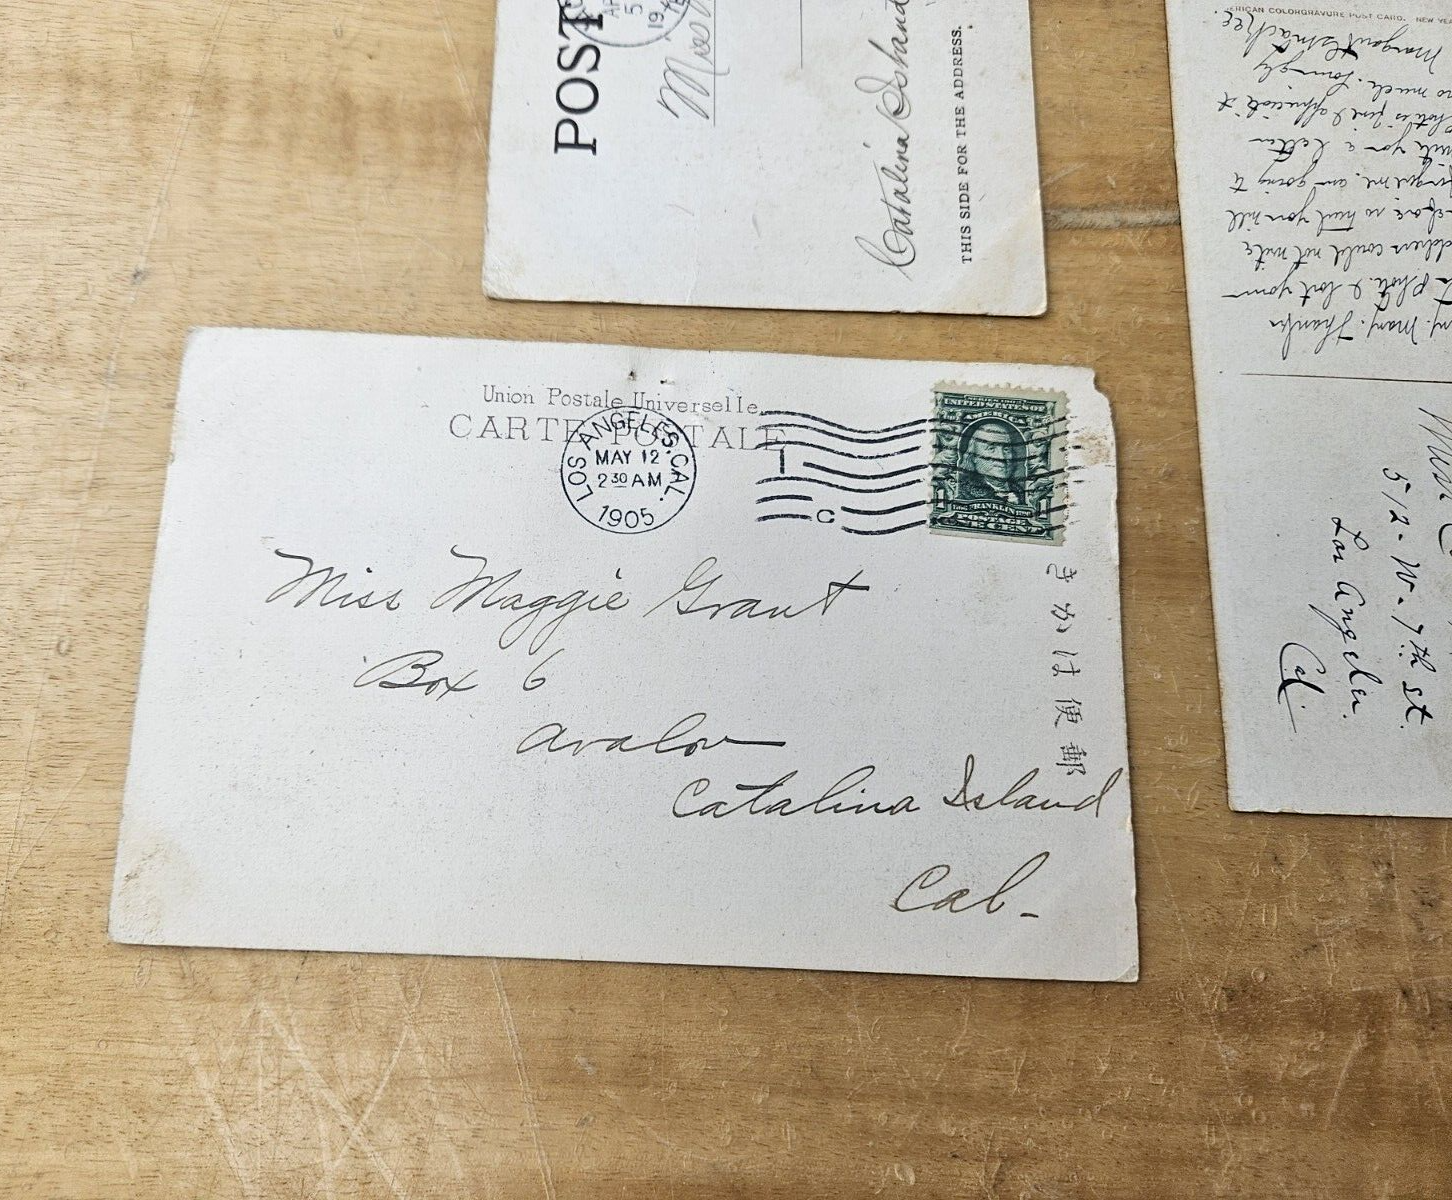 POST
Miss
Catalina Island
THIS SIDE FOR THE ADDRESS.
AMERICAN COLORGRAVURE POST CARD. NEW
Thanks
photo. I lost your
could not write
so hand you will
am going to
you a letter
appreciate it
so much. Lovingly
Margaret
512. W. 7th St.
Los Angeles.
Cal
Union Postale Universelle.
CARTE POSTALE
LOS ANGELES, CAL.
MAY 12
2 30 AM
1905
C
SERIES 1902
UNITED STATES OF
AMERICA
FRANKLIN
POSTAGE
1 ONE CENT 1
Miss Maggie Grant
Box 6
Avalon
Catalina Island
Cal-
きかは便郵